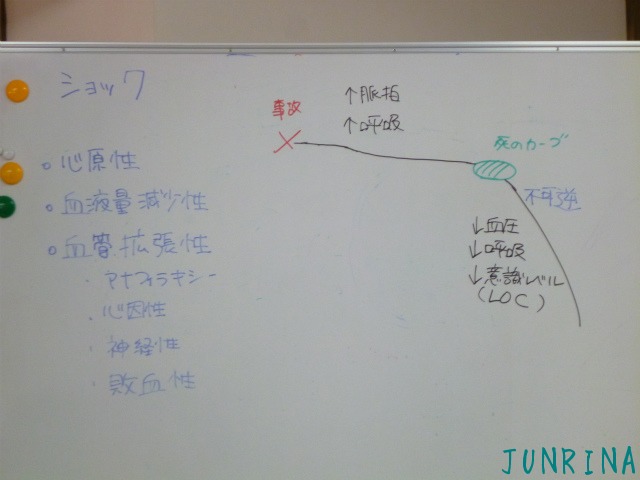 ショック
。心原性
。血液量減少性
。血管拡張性
・アナフィラキシー
・心因性
・神経性
・敗血性
事故
↑脈拍
↑呼吸
死のカーブ
不可逆
↓血圧
↓呼吸
↓意識レベル
(LOC)
JUNRINA